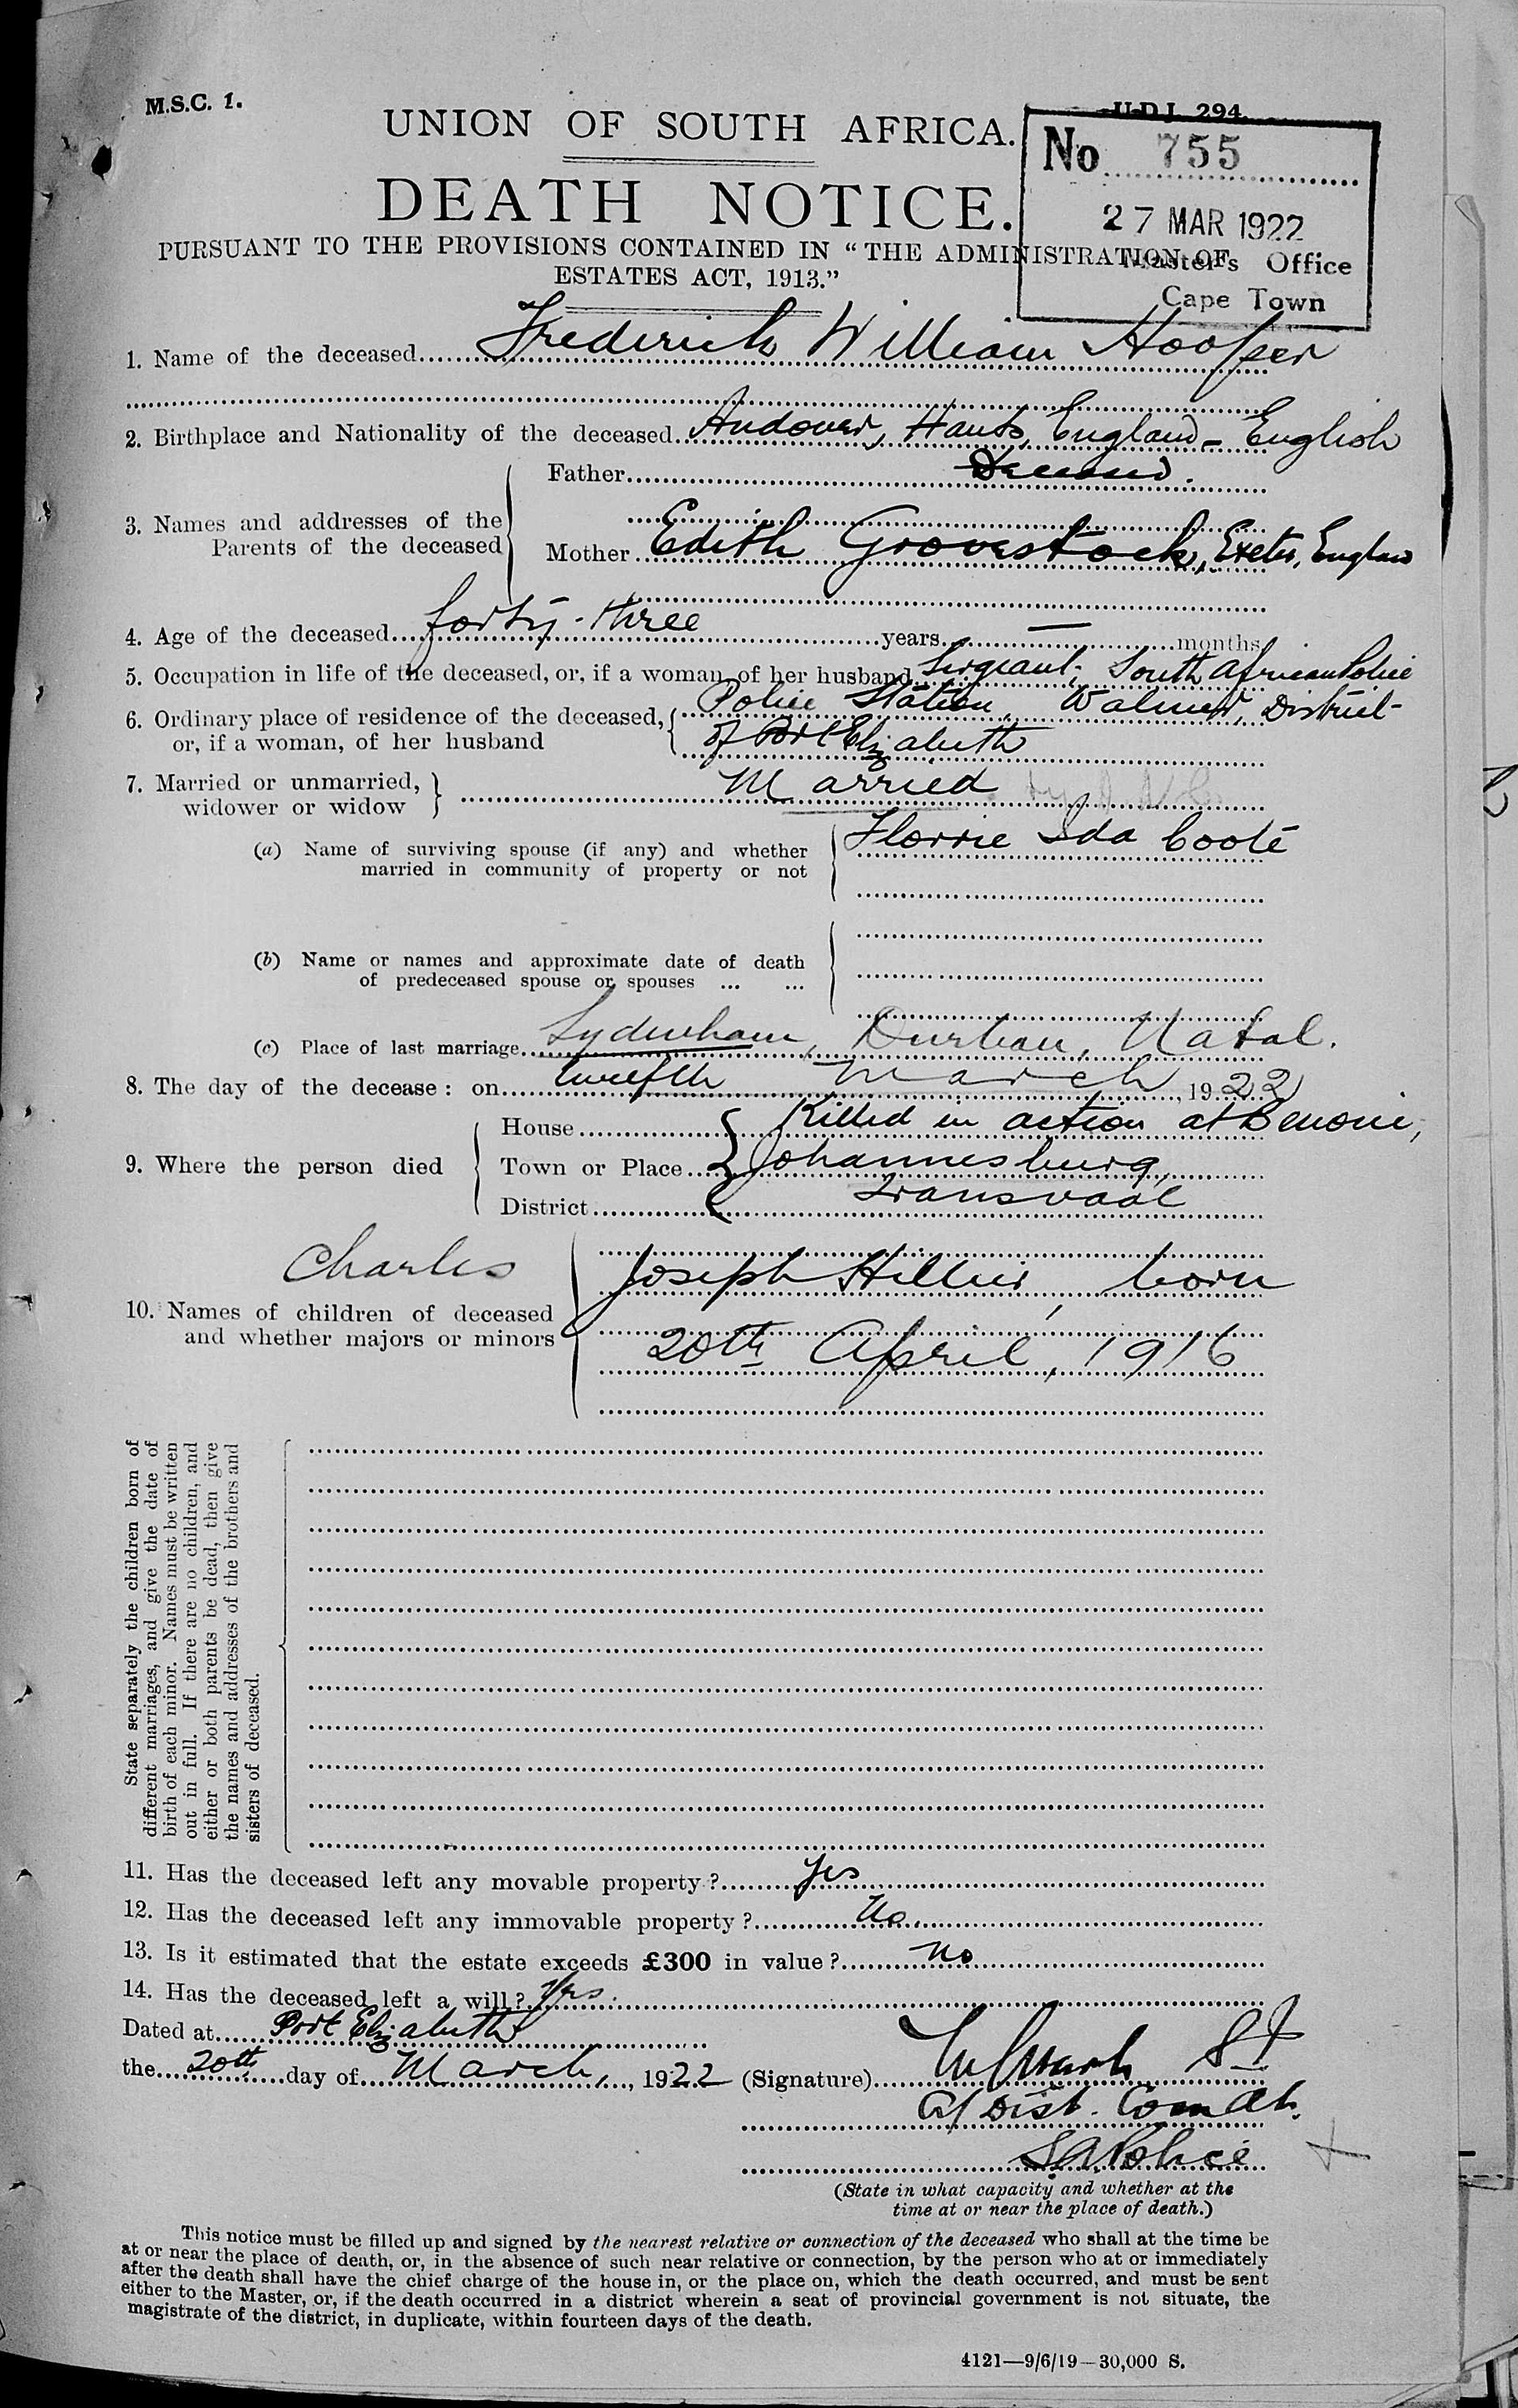 M.S.C. 1.
U.D.J. 294.
UNION OF SOUTH AFRICA.
No 755
27 MAR 1922
Master's Office
Cape Town
DEATH NOTICE.
PURSUANT TO THE PROVISIONS CONTAINED IN “THE ADMINISTRATION OF
ESTATES ACT, 1913.”
1. Name of the deceased Frederick William Hooper
2. Birthplace and Nationality of the deceased Andover, Hants, England - English
3. Names and addresses of the Parents of the deceased
Father Deceased.
Mother Edith Grovestock, Exeter, England
4. Age of the deceased forty-three years — months
5. Occupation in life of the deceased, or, if a woman, of her husband Sergeant, South African Police
6. Ordinary place of residence of the deceased, Police Station, Walmer, District
or, if a woman, of her husband of Port Elizabeth
7. Married or unmarried, widower or widow Married
(a) Name of surviving spouse (if any) and whether Florrie Ida Coote
married in community of property or not
(b) Name or names and approximate date of death
of predeceased spouse or spouses ... ...
(c) Place of last marriage Sydenham, Durban, Natal.
8. The day of the decease: on twelfth March, 1922
9. Where the person died
House Killed in action at Benoni,
Town or Place Johannesburg,
District Transvaal
10. Names of children of deceased
and whether majors or minors
Charles Joseph Hillier, born
20th April, 1916
State separately the children born of
different marriages, and give the date of
birth of each minor. Names must be written
out in full. If there are no children, and
either or both parents be dead, then give
the names and addresses of the brothers and
sisters of deceased.
11. Has the deceased left any movable property? Yes
12. Has the deceased left any immovable property? No.
13. Is it estimated that the estate exceeds £300 in value? No
14. Has the deceased left a will? Yes.
Dated at Port Elizabeth
the 20th day of March, 1922 (Signature)
A/ Dist. Comdt.
S.A. Police
(State in what capacity and whether at the
time at or near the place of death.)
This notice must be filled up and signed by the nearest relative or connection of the deceased who shall at the time be
at or near the place of death, or, in the absence of such near relative or connection, by the person who at or immediately
after the death shall have the chief charge of the house in, or the place on, which the death occurred, and must be sent
either to the Master, or, if the death occurred in a district wherein a seat of provincial government is not situate, the
magistrate of the district, in duplicate, within fourteen days of the death.
4121—9/6/19—30,000 S.